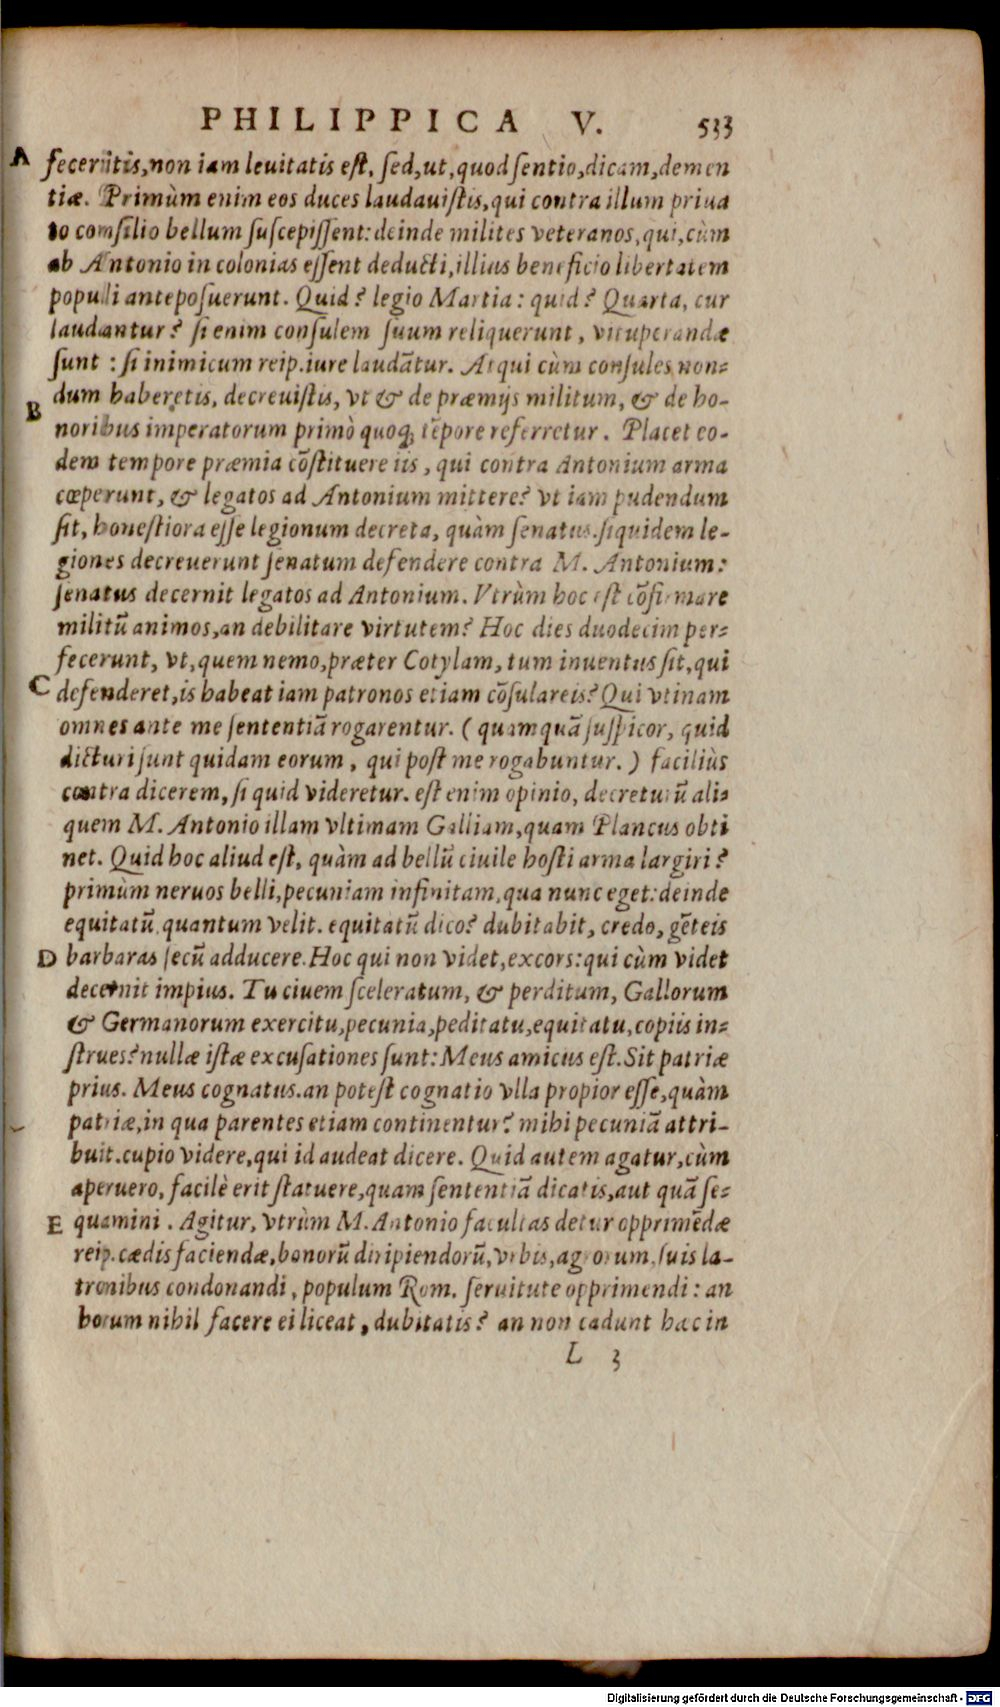 PHILIPPICA V. 533
A feceritis, non iam leuitatis est, sed, ut, quod sentio, dicam, demen
tiæ. Primùm enim eos duces laudauistis, qui contra illum priua
to consilio bellum suscepissent: deinde milites veteranos, qui, cùm
ab Antonio in colonias essent deducti, illius beneficio libertatem
populi anteposuerunt. Quid? legio Martia: quid? Quarta, cur
laudantur? si enim consulem suum reliquerunt, vituperandæ
sunt: si inimicum reip. iure laudãtur. Atqui cùm consules non-
dum haberetis, decreuistis, vt & de præmijs militum, & de ho-
B noribus imperatorum primò quoq; tẽpore referretur. Placet eo-
dem tempore præmia cõstituere iis, qui contra Antonium arma
cœperunt, & legatos ad Antonium mittere? vt iam pudendum
sit, honestiora esse legionum decreta, quàm senatus. siquidem le-
giones decreuerunt senatum defendere contra M. Antonium:
senatus decernit legatos ad Antonium. Vtrùm hoc est cõfirmare
militũ animos, an debilitare virtutem? Hoc dies duodecim per-
fecerunt, vt, quem nemo, præter Cotylam, tum inuentus sit, qui
C defenderet, is habeat iam patronos etiam cõsulareis? Qui vtinam
omnes ante me sententiã rogarentur. (quamquã suspicor, quid
dicturi sunt quidam eorum, qui post me rogabuntur.) faciliùs
contra dicerem, si quid videretur. est enim opinio, decreturũ ali-
quem M. Antonio illam vltimam Galliam, quam Plancus obti
net. Quid hoc aliud est, quàm ad bellũ ciuile hosti arma largiri?
primùm neruos belli, pecuniam infinitam, qua nunc eget: deinde
equitatũ, quantum velit. equitatũ dico? dubitabit, credo, gẽteis
D barbaras secũ adducere. Hoc qui non videt, excors: qui cùm videt
decernit impius. Tu ciuem sceleratum, & perditum, Gallorum
& Germanorum exercitu, pecunia, peditatu, equitatu, copiis in-
strues? nullæ istæ excusationes sunt: Meus amicus est. Sit patriæ
prius. Meus cognatus. an potest cognatio vlla propior esse, quàm
patriæ, in qua parentes etiam continentur? mihi pecuniã attri-
buit. cupio videre, qui id audeat dicere. Quid autem agatur, cùm
aperuero, facilè erit statuere, quam sententiã dicatis, aut quã se-
E quamini. Agitur, vtrùm M. Antonio facultas detur opprimẽdæ
reip. cædis faciendæ, bonorũ diripiendorũ, vrbis, agrorum, suis la-
tronibus condonandi, populum Rom. seruitute opprimendi: an
horum nihil facere ei liceat, dubitatis? an non cadunt hæc in
L 3
Digitalisierung gefördert durch die Deutsche Forschungsgemeinschaft - DFG